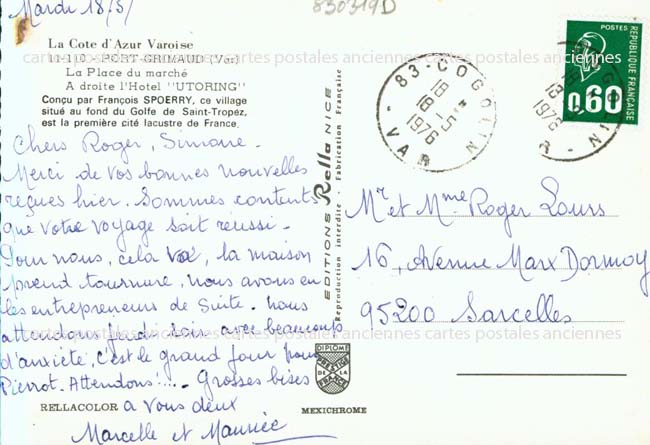 Mardi 18/5/
830319D
La Cote d'Azur Varoise
11-110 - PORT-GRIMAUD (Var)
La Place du marché
A droite l'Hotel "UTORING"
Conçu par François SPOERRY, ce village
situé au fond du Golfe de Saint-Tropéz,
est la première cité lacustre de France.
Chers Roger, Simone.
Merci de vos bonnes nouvelles
reçues hier. Sommes contents
que votre voyage soit réussi.
Pour nous, cela va, la maison
prend tournure, nous avons eu
les entrepreneurs de suite. Nous
attendons jeudi soir avec beaucoup
d'anxiété, c'est le grand jour pour
Pierrot. Attendons!... Grosses bises
a vous deux
Marcelle et Maurice
RELLACOLOR
MEXICHROME
EDITIONS Rella NICE
Reproduction interdite - Fabrication Française
DIPLÔME
PRESTIGE
DE LA
FRANCE
83-COGOLIN
18 H
18-5
1976
VAR
POSTES
0,60
REPUBLIQUE FRANÇAISE
Mr et Mme Roger Lours
16, Avenue Marx Dormoy
95200 Sarcelles
cartes postales anciennes cartes postales anciennes cartes postales anciennes
cartes postales anciennes cartes postales anciennes cartes postales anciennes